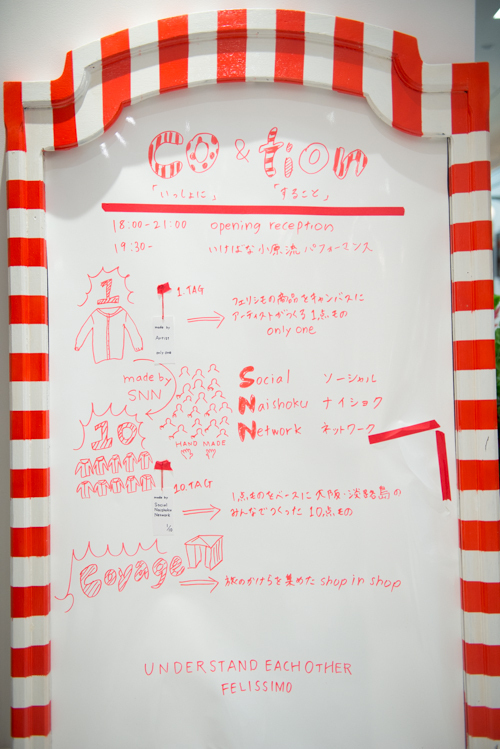 CO & tion
「いっしょに」 「すること」
18:00-21:00 opening reception
19:30- いけばな小原流 パフォーマンス
1
1.TAG
made by
Artist
only one
フェリシモの商品をキャンバスに
アーティストがつくる 1点もの
only one
made by
SNN
HAND MADE
Social ソーシャル
Naishoku ナイショク
Network ネットワーク
10
10.TAG
made by
Social
Naishoku
Network
1/10
1点ものをベースに 大阪・淡路島の
みんなでつくった 10点もの
Goyage
旅のかけらを集めた shop in shop
UNDERSTAND EACH OTHER
FELISSIMO